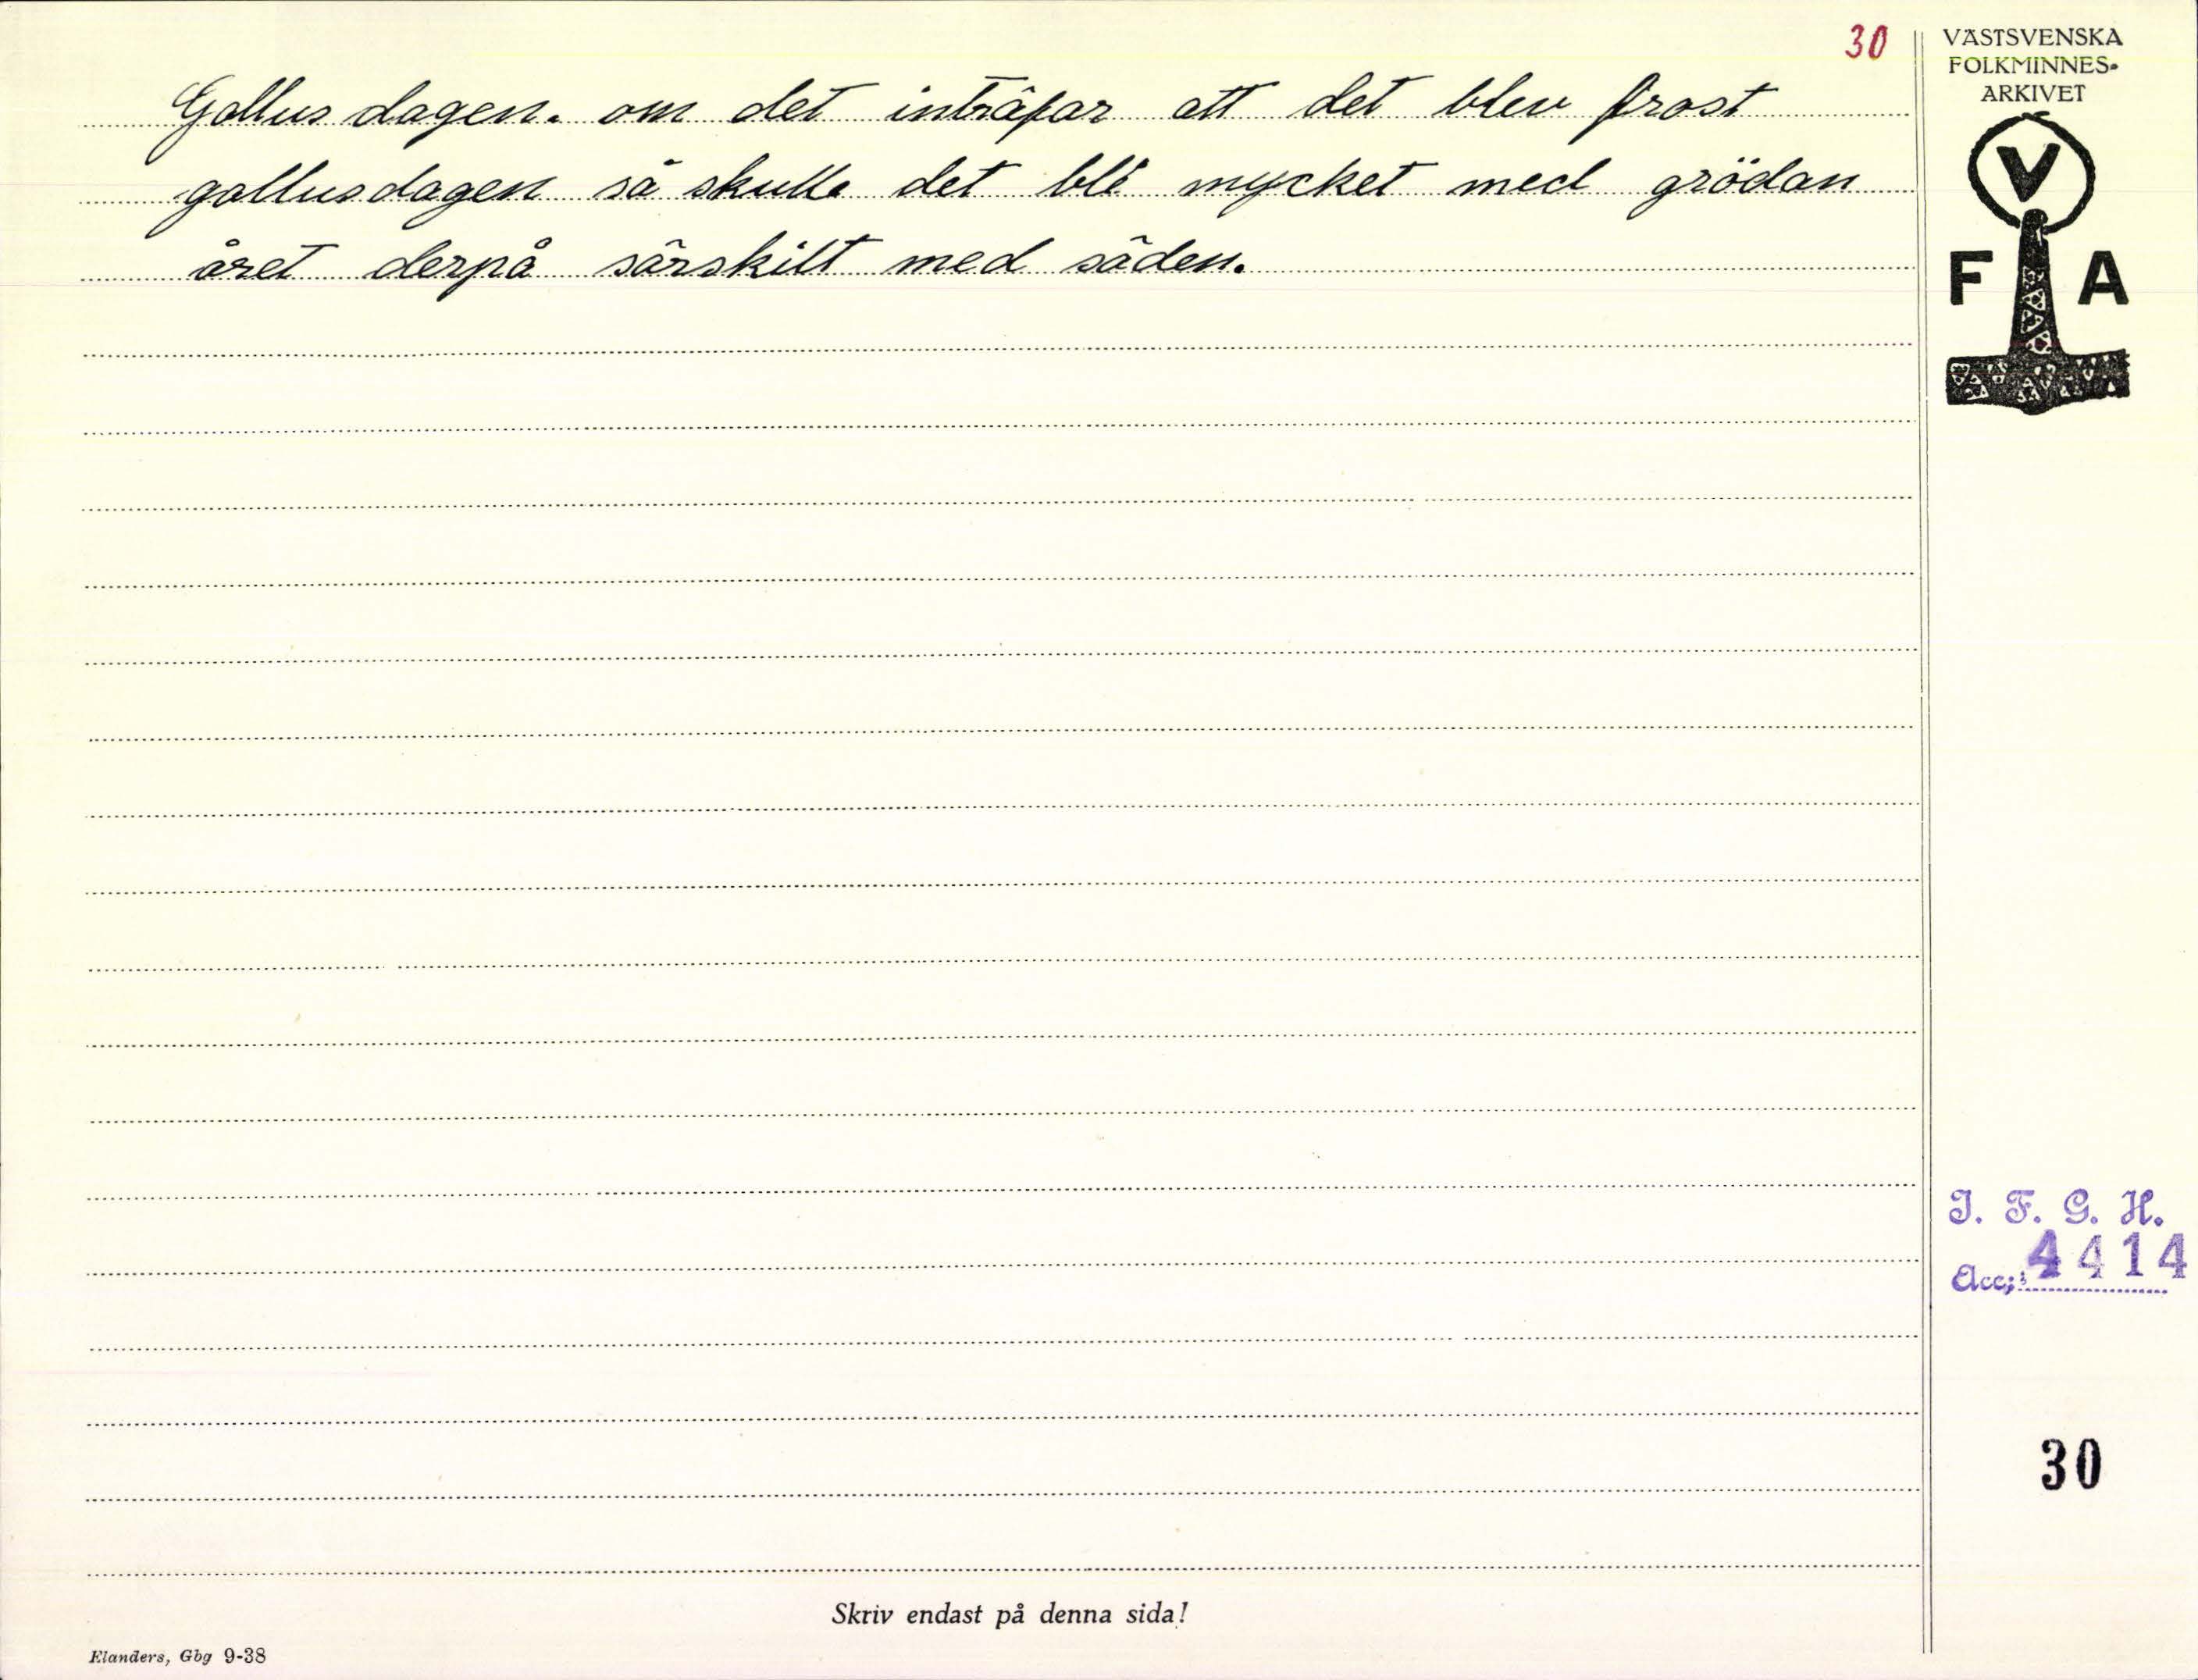 30
VÄSTSVENSKA
FOLKMINNES-
ARKIVET
V
F A
Gallus dagen. om det inträfar att det blev frost
gallusdagen så skulle det bli mycket med grödan
året derpå särskilt med säden.
I. F. G. H.
Acc: 4414
30
Skriv endast på denna sida!
Elanders, Gbg 9-38